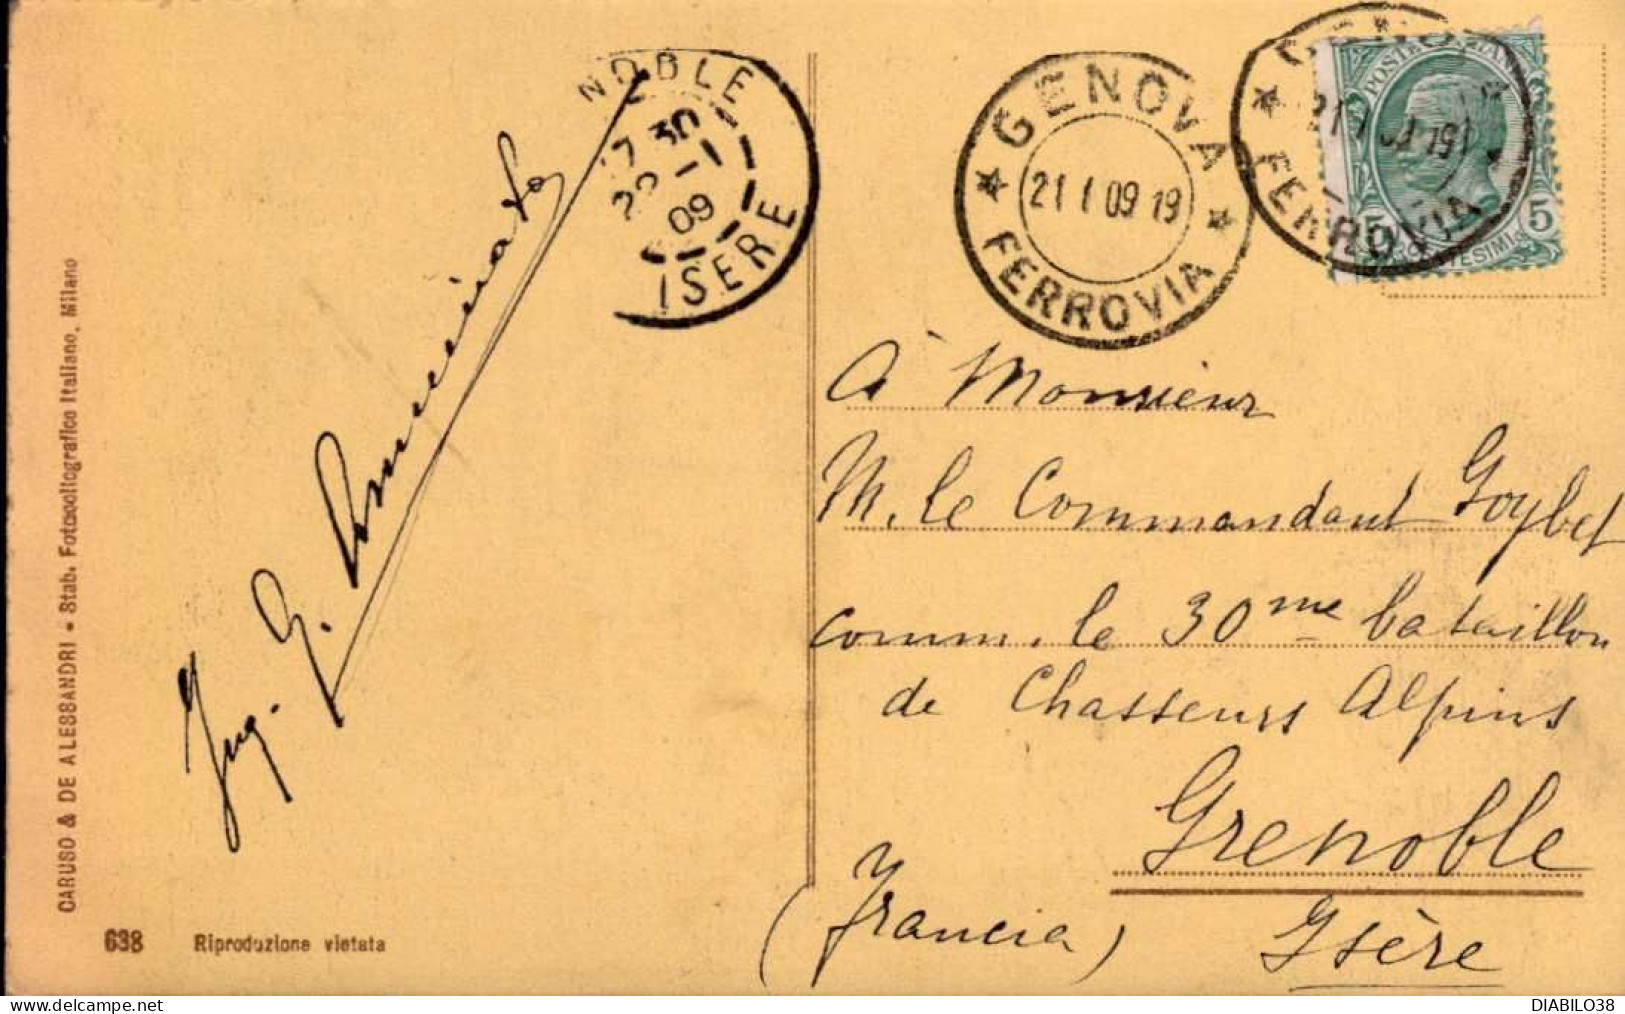 CARUSO & DE ALESSANDRI • Stab. Fotocollografico Italiano, Milano
638 Riproduzione vietata
Ing. G.
NOBLE
17 30
22 -1
09
ISERE
GENOVA
21 1 09 19
FERROVIA
FERROVIA
POSTE ITALIANE
5 5
CENTESIMI
à Monsieur
M. le Commandant Goybet
comm. le 30me bataillon
de Chasseurs Alpins
Grenoble
(Francia) Isère
DIABILO38